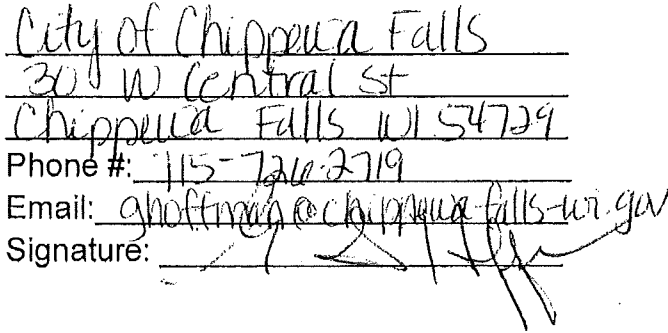 City of Chippewa Falls
30 W Central St
Chippewa Falls WI 54729
Phone #: 715-726-2719
Email: ghoffman@chippewafalls-wi.gov
Signature: